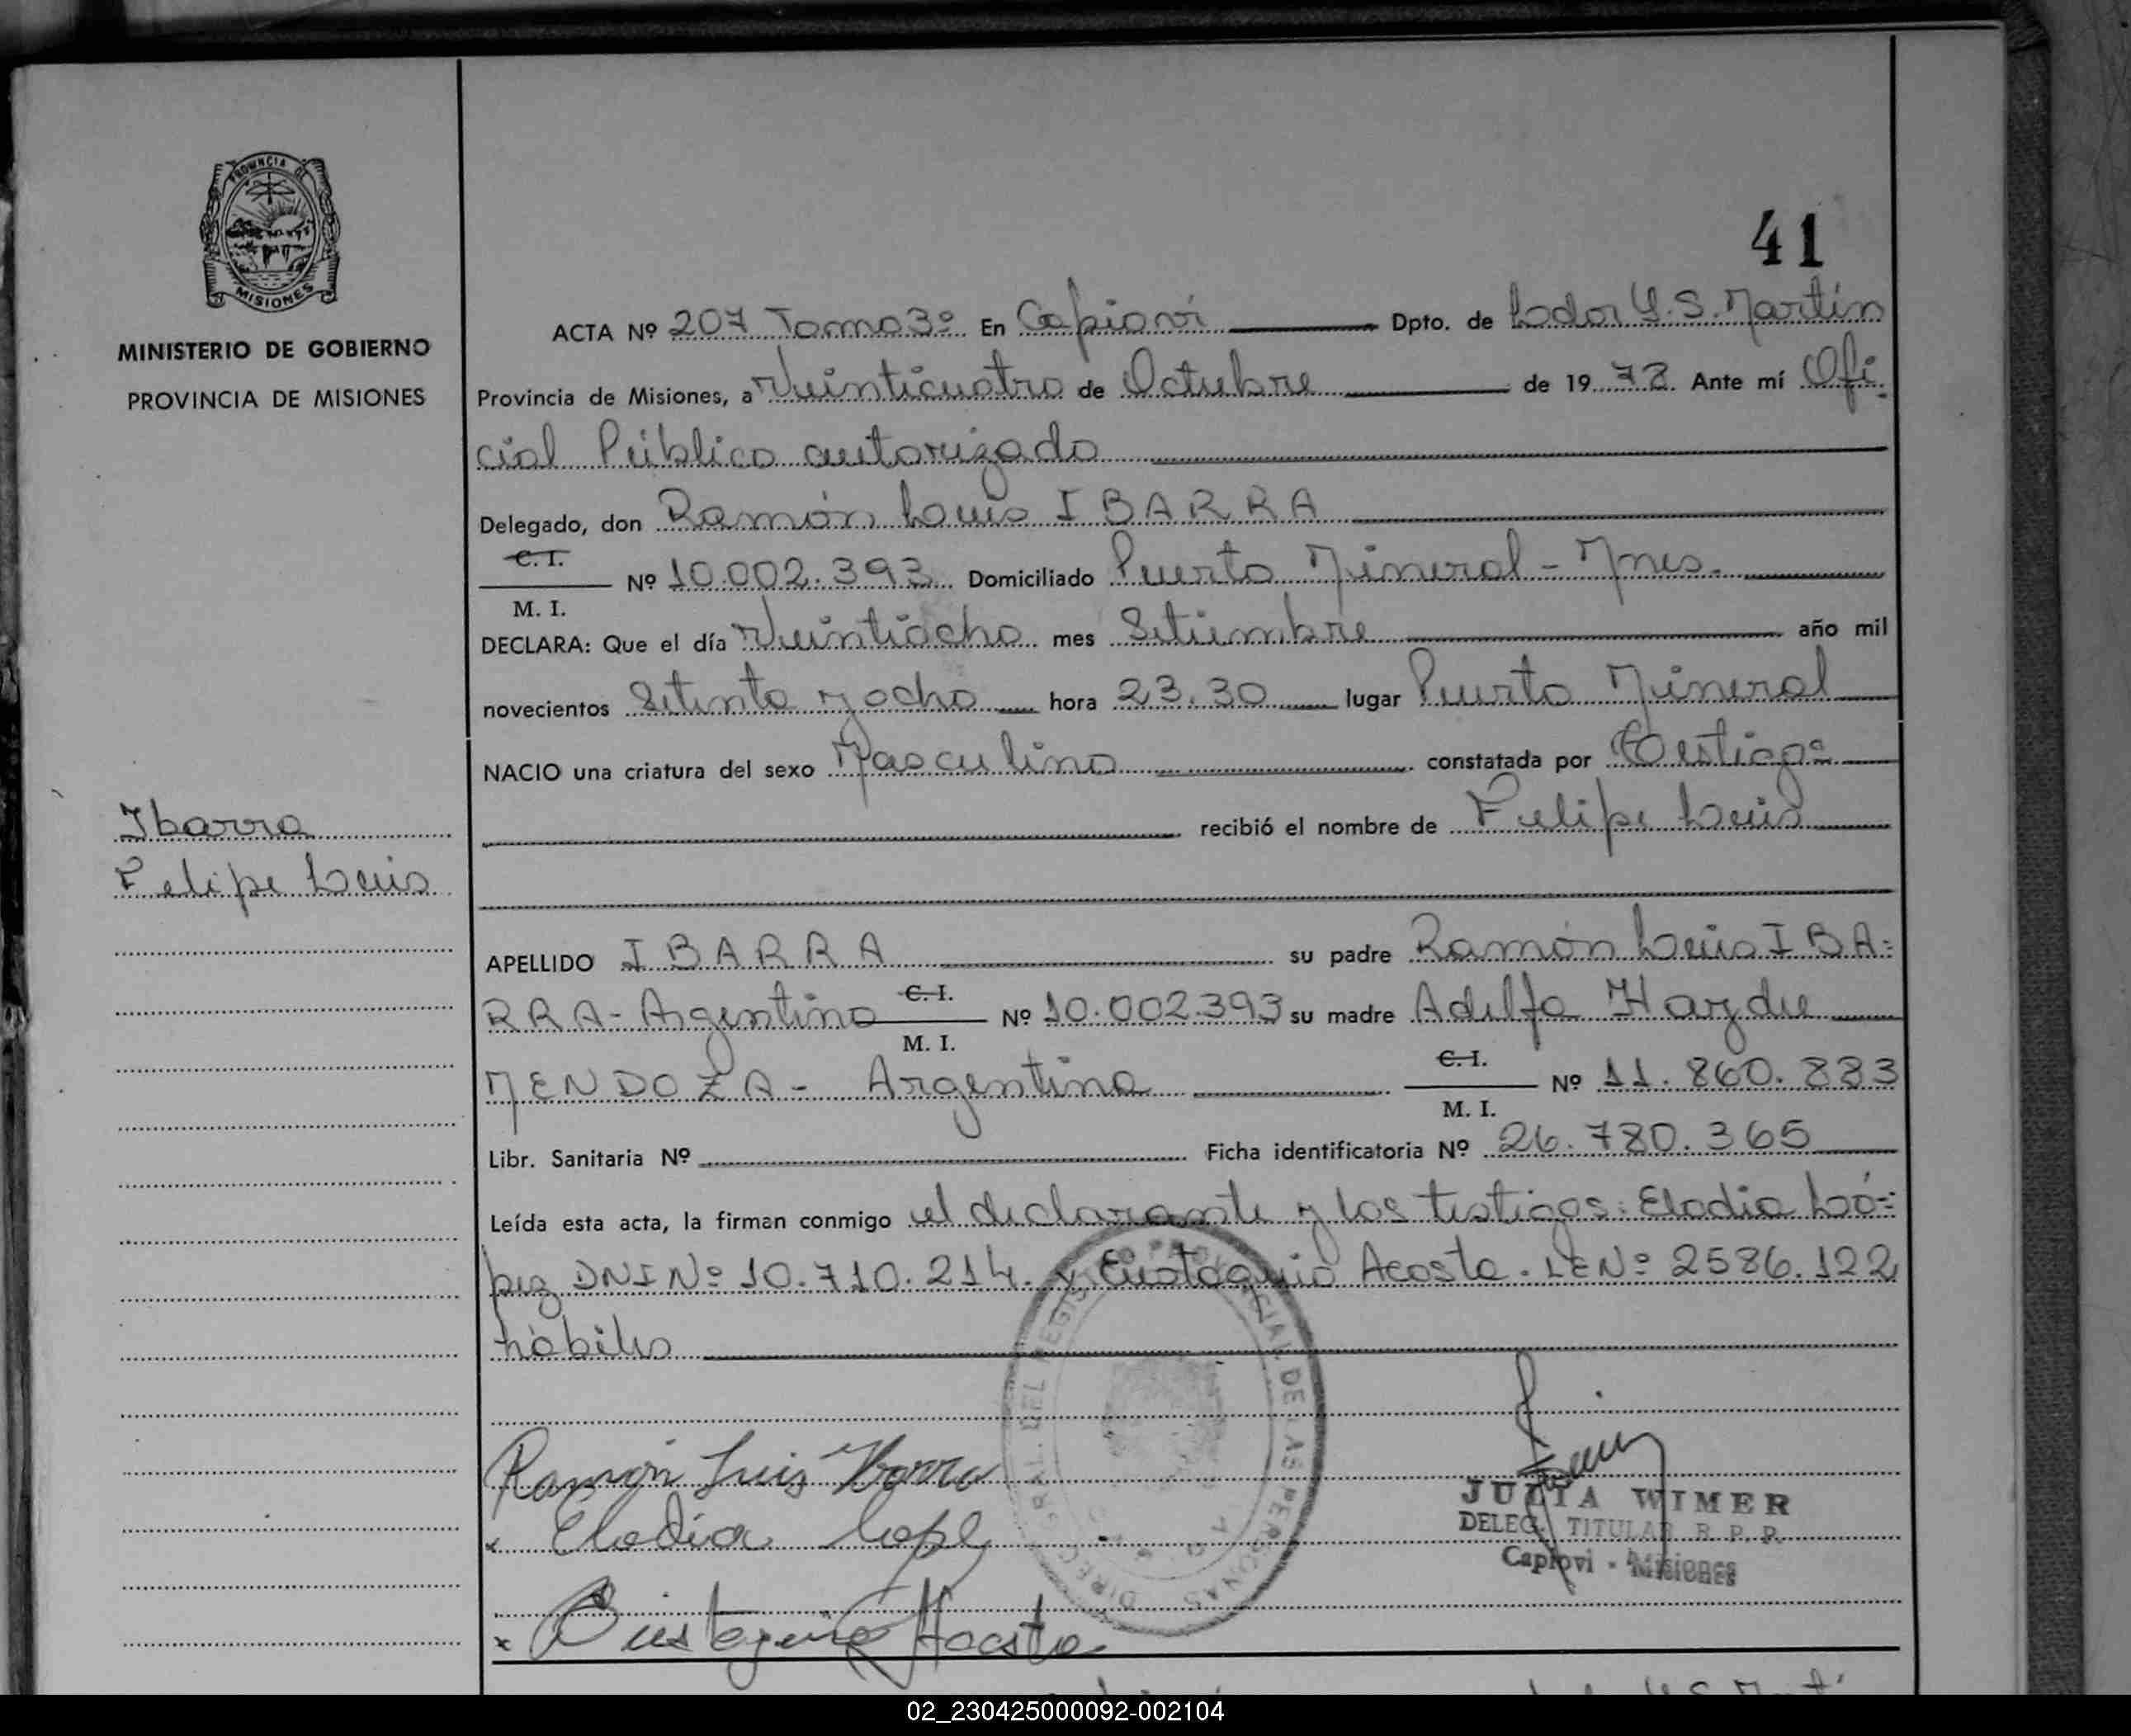 41
PROVINCIA DE
MISIONES
MINISTERIO DE GOBIERNO
PROVINCIA DE MISIONES
ACTA Nº 207 Tomo 3º En Capioví Dpto. de Ldor G. S. Martín
Provincia de Misiones, a Veinticuatro de Octubre de 19 78 Ante mí Ofi-
cial Público autorizado
Delegado, don Ramón Luis IBARRA
C. I.
M. I. Nº 10.002.393 Domiciliado Puerto Mineral - Mnes.
DECLARA: Que el día Veintiocho mes Setiembre año mil
novecientos Setenta y ocho hora 23.30 lugar Puerto Mineral
NACIO una criatura del sexo Masculino constatada por Testigos
recibió el nombre de Felipe Luis
Ibarra
Felipe Luis
APELLIDO IBARRA su padre Ramón Luis IBA=
RRA - Argentino C. I. M. I. Nº 10.002.393 su madre Adelfa Haydee
MENDOZA - Argentina C. I. M. I. Nº 11.860.883
Libr. Sanitaria Nº Ficha identificatoria Nº 26.780.365
Leída esta acta, la firman conmigo el declarante y los testigos: Elodia Ló=
pez DNI Nº 10.710.214. y Eustaquio Acosta. LE Nº 2586.122
hábiles
DIREC. GRAL. DEL REGISTRO PROVINCIAL DE LAS PERSONAS
Ramón Luis Ibarra
x Elodia Lope
x Eustaquio Acosta
JULIA WIMER
DELEG. TITULAR R. P. P.
Capiovi - Misiones
02_230425000092-002104